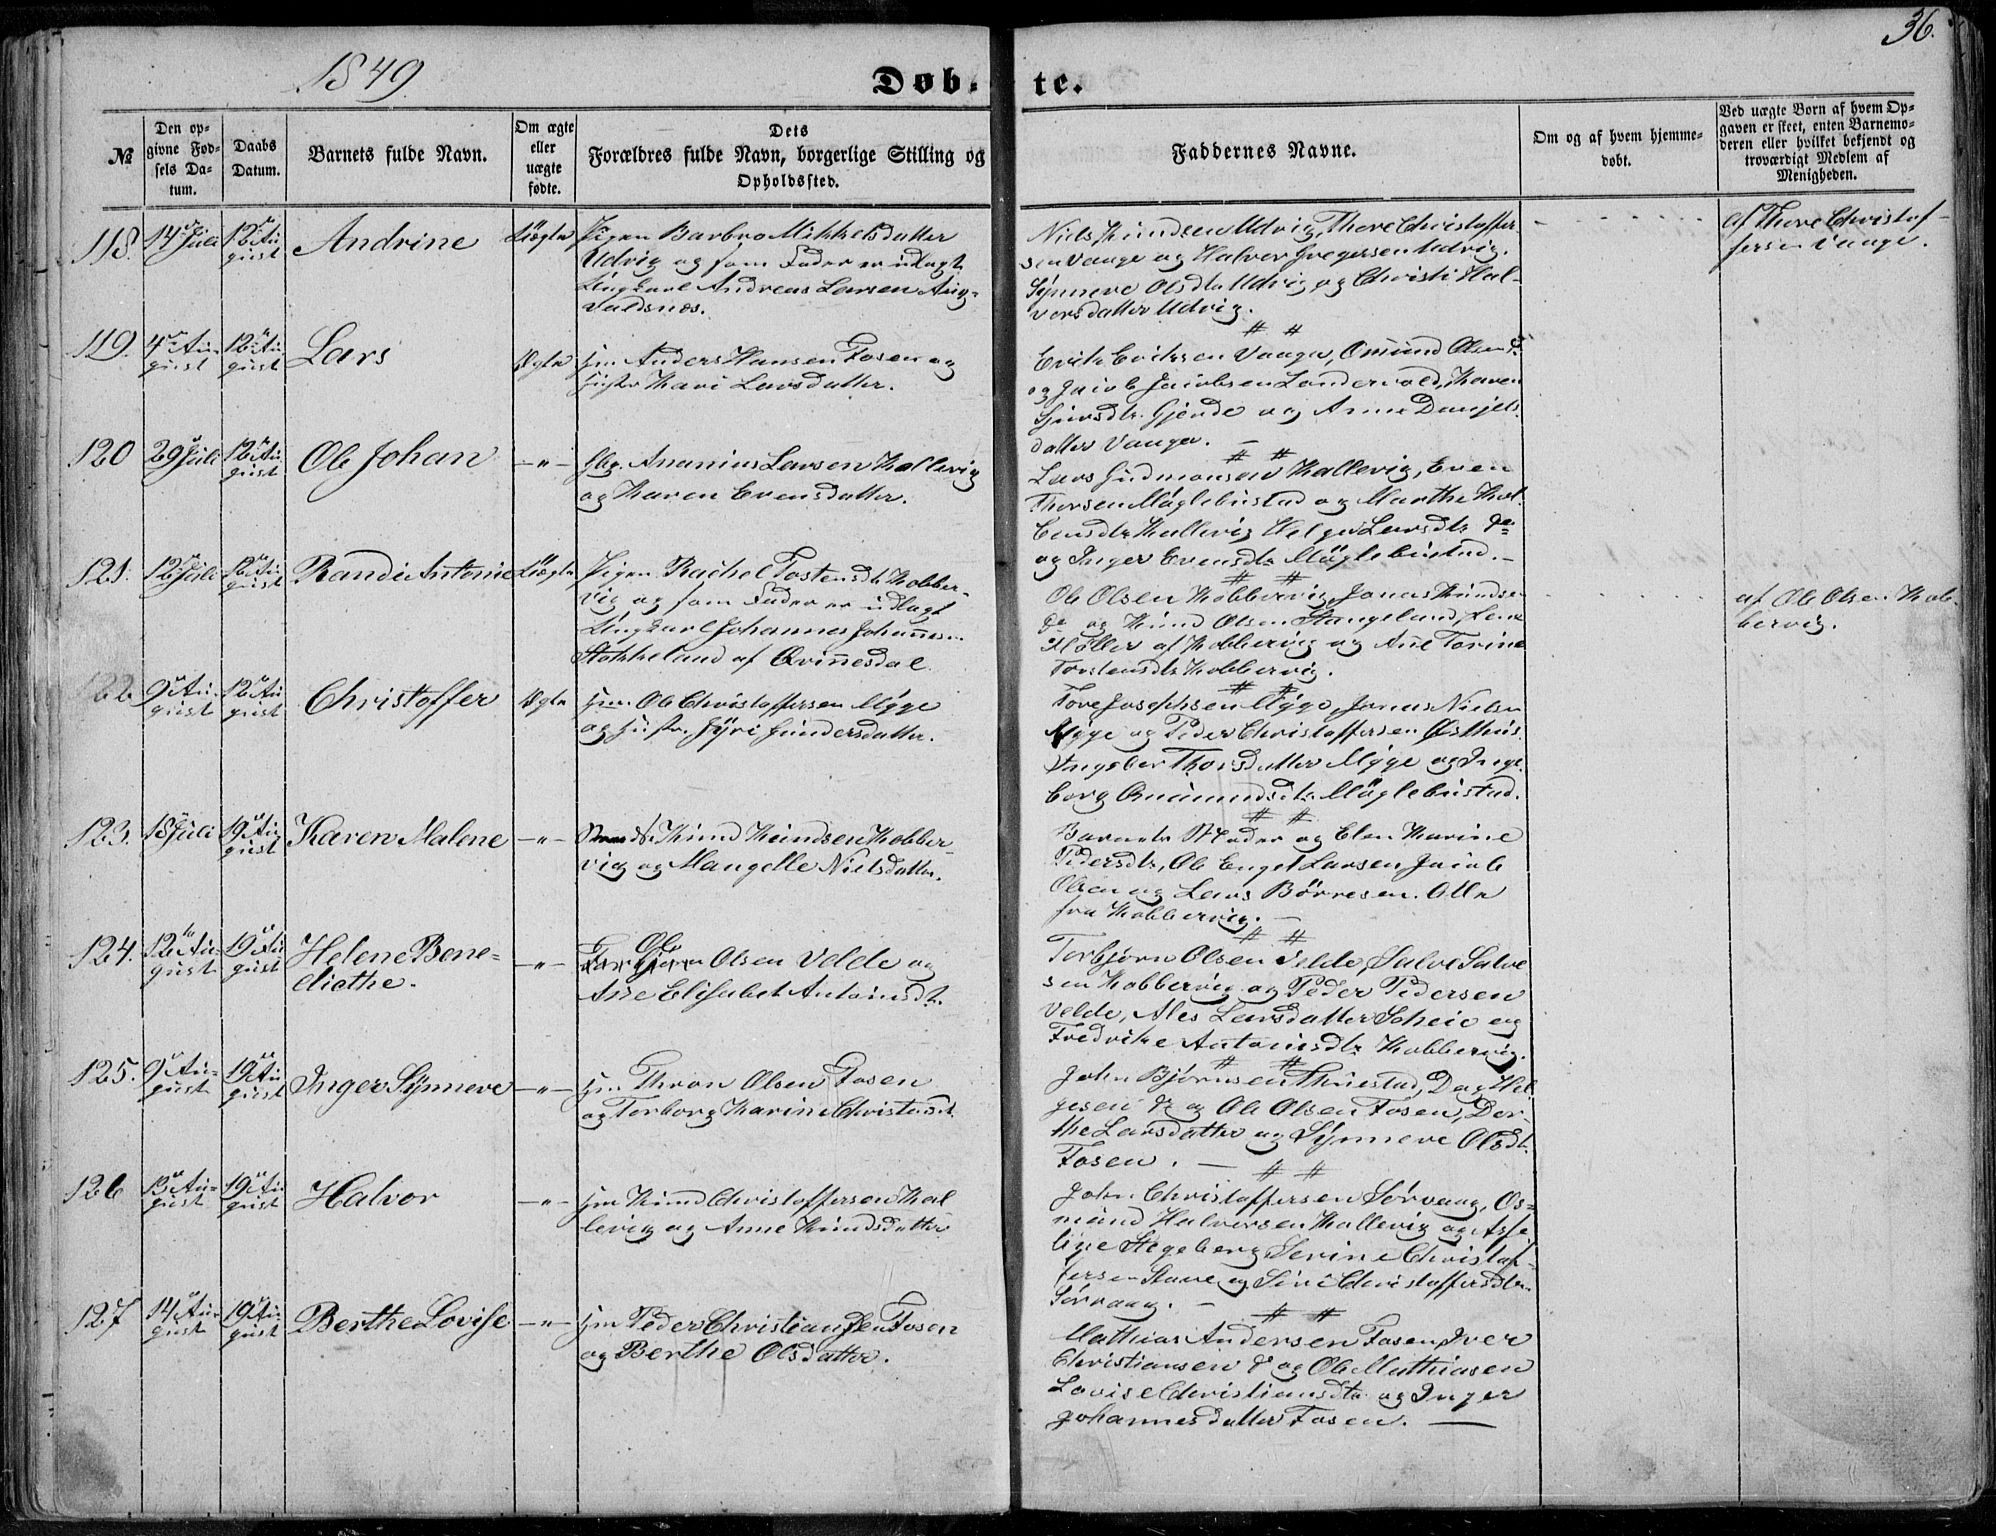 1849
36.
Døb- te.
№
Den op-
givne Fød-
sels Da-
tum.
Daabs
Datum.
Barnets fulde Navn.
Om ægte
eller
uægte
fødte.
Dets
Forældres fulde Navn, borgerlige Stilling og
Opholdssted.
Faddernes Navne.
Om og af hvem hjemme-
døbt.
Ved uægte Børn af hvem Op-
gaven er skeet, enten Barnemo-
deren eller hvilket bekjendt og
troværdigt Medlem af
Menigheden.
118. 14 Juli 12 Au-
gust
Andrine
Uægte
Pigen Barbro Mikkelsdatter
Udvig og som Fader er udlagt
Ungkarl Andreas Larsen Aug-
valdsnæs.
Niels Knudsen Udvig, Thore Christoffer
sen Vaage og Halvor Gregersen Udvig.
Synneve Olsdtr Udvig og Christi Hal-
vorsdatter Udvig.
af Thore Christof-
fersen Vaage.
119. 4 Au-
gust
12 Au
gust
Lars
Ægte
Anders Hansen Fosen og
Kari Larsdatter.
Erik Eriksen Vaage, Omund Olsen
og Jacob Jacobsen Landervold, Karen
Sjursdtr. Gjerde og Anne Danjels
datter Vaage.
120 29 Juli 12 Au
gust
Ole Johan
—"—
Ananias Larsen Kallevig
og Karen Evensdatter.
Lars Gudmonsen Kallevig, Even
Thorsen Møglebustad og Marthe Kol
Kallevig Helge Larsdtr do
og Inger Evensdtr Møglebustad.
121. 12 Juli 12 Au
gust
Randi Antonie
Uægte
Pigen Rachel Tostensdtr Kobber-
vig og som Fader er udlagt
Ungkarl Johannes Johannesen
Stokkeland af Qvinnesdal.
Ole Olsen Kobbervig, Jonas Knudsen
do og Knud Olsen Stangeland, Lene
Møller af Kobbervig og Ane Torine
Torstensdtr Kobbervig.
af Ole Olsen Kob-
bervig.
122 9 Au-
gust
12 Au
gust
Christoffer
Ægte
Ole Christoffersen Myge
og Hustr. Gyri Gundersdatter.
Tore Josephsen Myge, Jonas Nielsen
Myge og Peder Christoffersen Østhus
Ingebor Thorsdatter Myge og Inge
borg Møglebustad.
123. 18 Juli 19 Au
gust
Karen Malene
—"—
Knud Knudsen Kobber-
vig og Mangelle Nielsdatter.
Barnets Moder og Elen Karine
Pedersdtr, Ole Engel Larsen Jacob
Olsen og Lars Børresen. Alle
fra Kobbervig.
124. 12 Au-
gust
19 Au
gust
Helene Bene-
dicthe.
—"—
Ole
Olsen Velde og
Ane Elisabet Antonisdt.
Torbjørn Olsen Velde, Salve Salve
sen Kobbervig og Peder Pedersen
Velde, Ales Larsdatter Scheie og
Fredrike Antonisdtr Kobbervig.
125. 9 Au-
gust
19 Au
gust
Inger Synneve
—"—
Thron Olsen Fosen
og Torborg Karine Christensdt.
John Bjørnsen Thuestad, Dag Hel
gesen do og Ole Olsen Fosen, Dor-
the Larsdatter og Synneve Olsdt.
Fosen.
126 13 Au-
gust
19 Au
gust
Halvor
—"—
Knud Christoffersen Kal
levig og Anne Knudsdatter
John Christoffersen Sørvaag, Os-
mund Halvorsen Kallevig og Asse
line Stegeberg, Serine Christof-
fersen Stave og Sine Christoffersdtr.
Sørvaag.
127 14 Au-
gust
19 Au-
gust
Berthe Lovise
—"—
Peder Christiansen Fosen
og Berthe Olsdatter.
Mathias Andersen Fosen, Iver
Christiansen do og Ole Mathiasen
Lovise Christiansdtr og Inger
Johannesdatter Fosen.